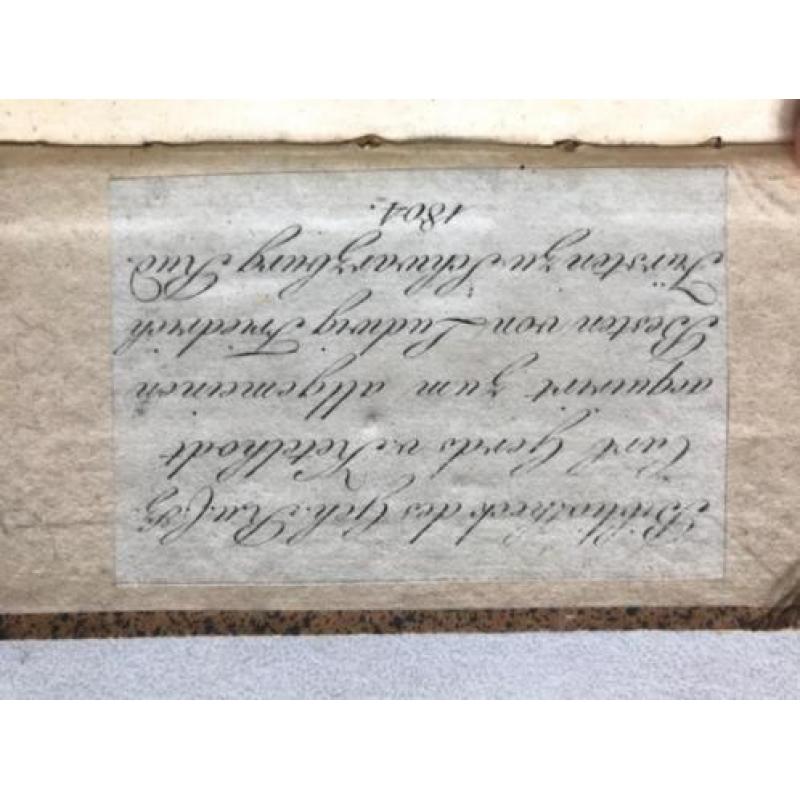 Bibliotheck des Geh:
Carl Gerds v. Ketelhodt
acquirirt zum allgemeinen
Besten von Ludwig Friedrich
Fürsten zu Schwarzburg Rud.
1804.